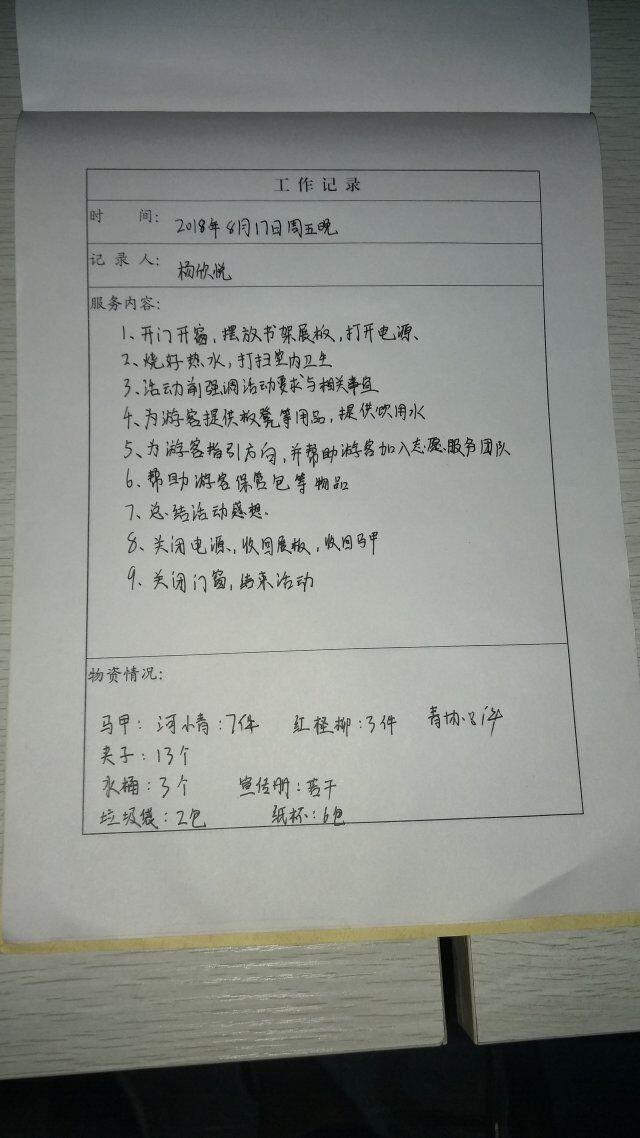 工作记录
时 间: 2018年8月17日周五晚
记录人: 杨欣悦
服务内容:
1、开门开窗,摆放书架展板,打开电源、
2、烧好热水,打扫室内卫生
3、活动前强调活动要求与相关事宜
4、为游客提供板凳等用品,提供饮用水
5、为游客指引方向,并帮助游客加入志愿服务团队
6、帮助游客保管包等物品
7、总结活动感想.
8、关闭电源,收回展板,收回马甲
9、关闭门窗,结束活动
物资情况:
马甲: 河小青:7件 红柽柳:3件 青协:8件
夹子:13个
水桶:3个 宣传册:若干
垃圾袋:2包 纸杯:6包